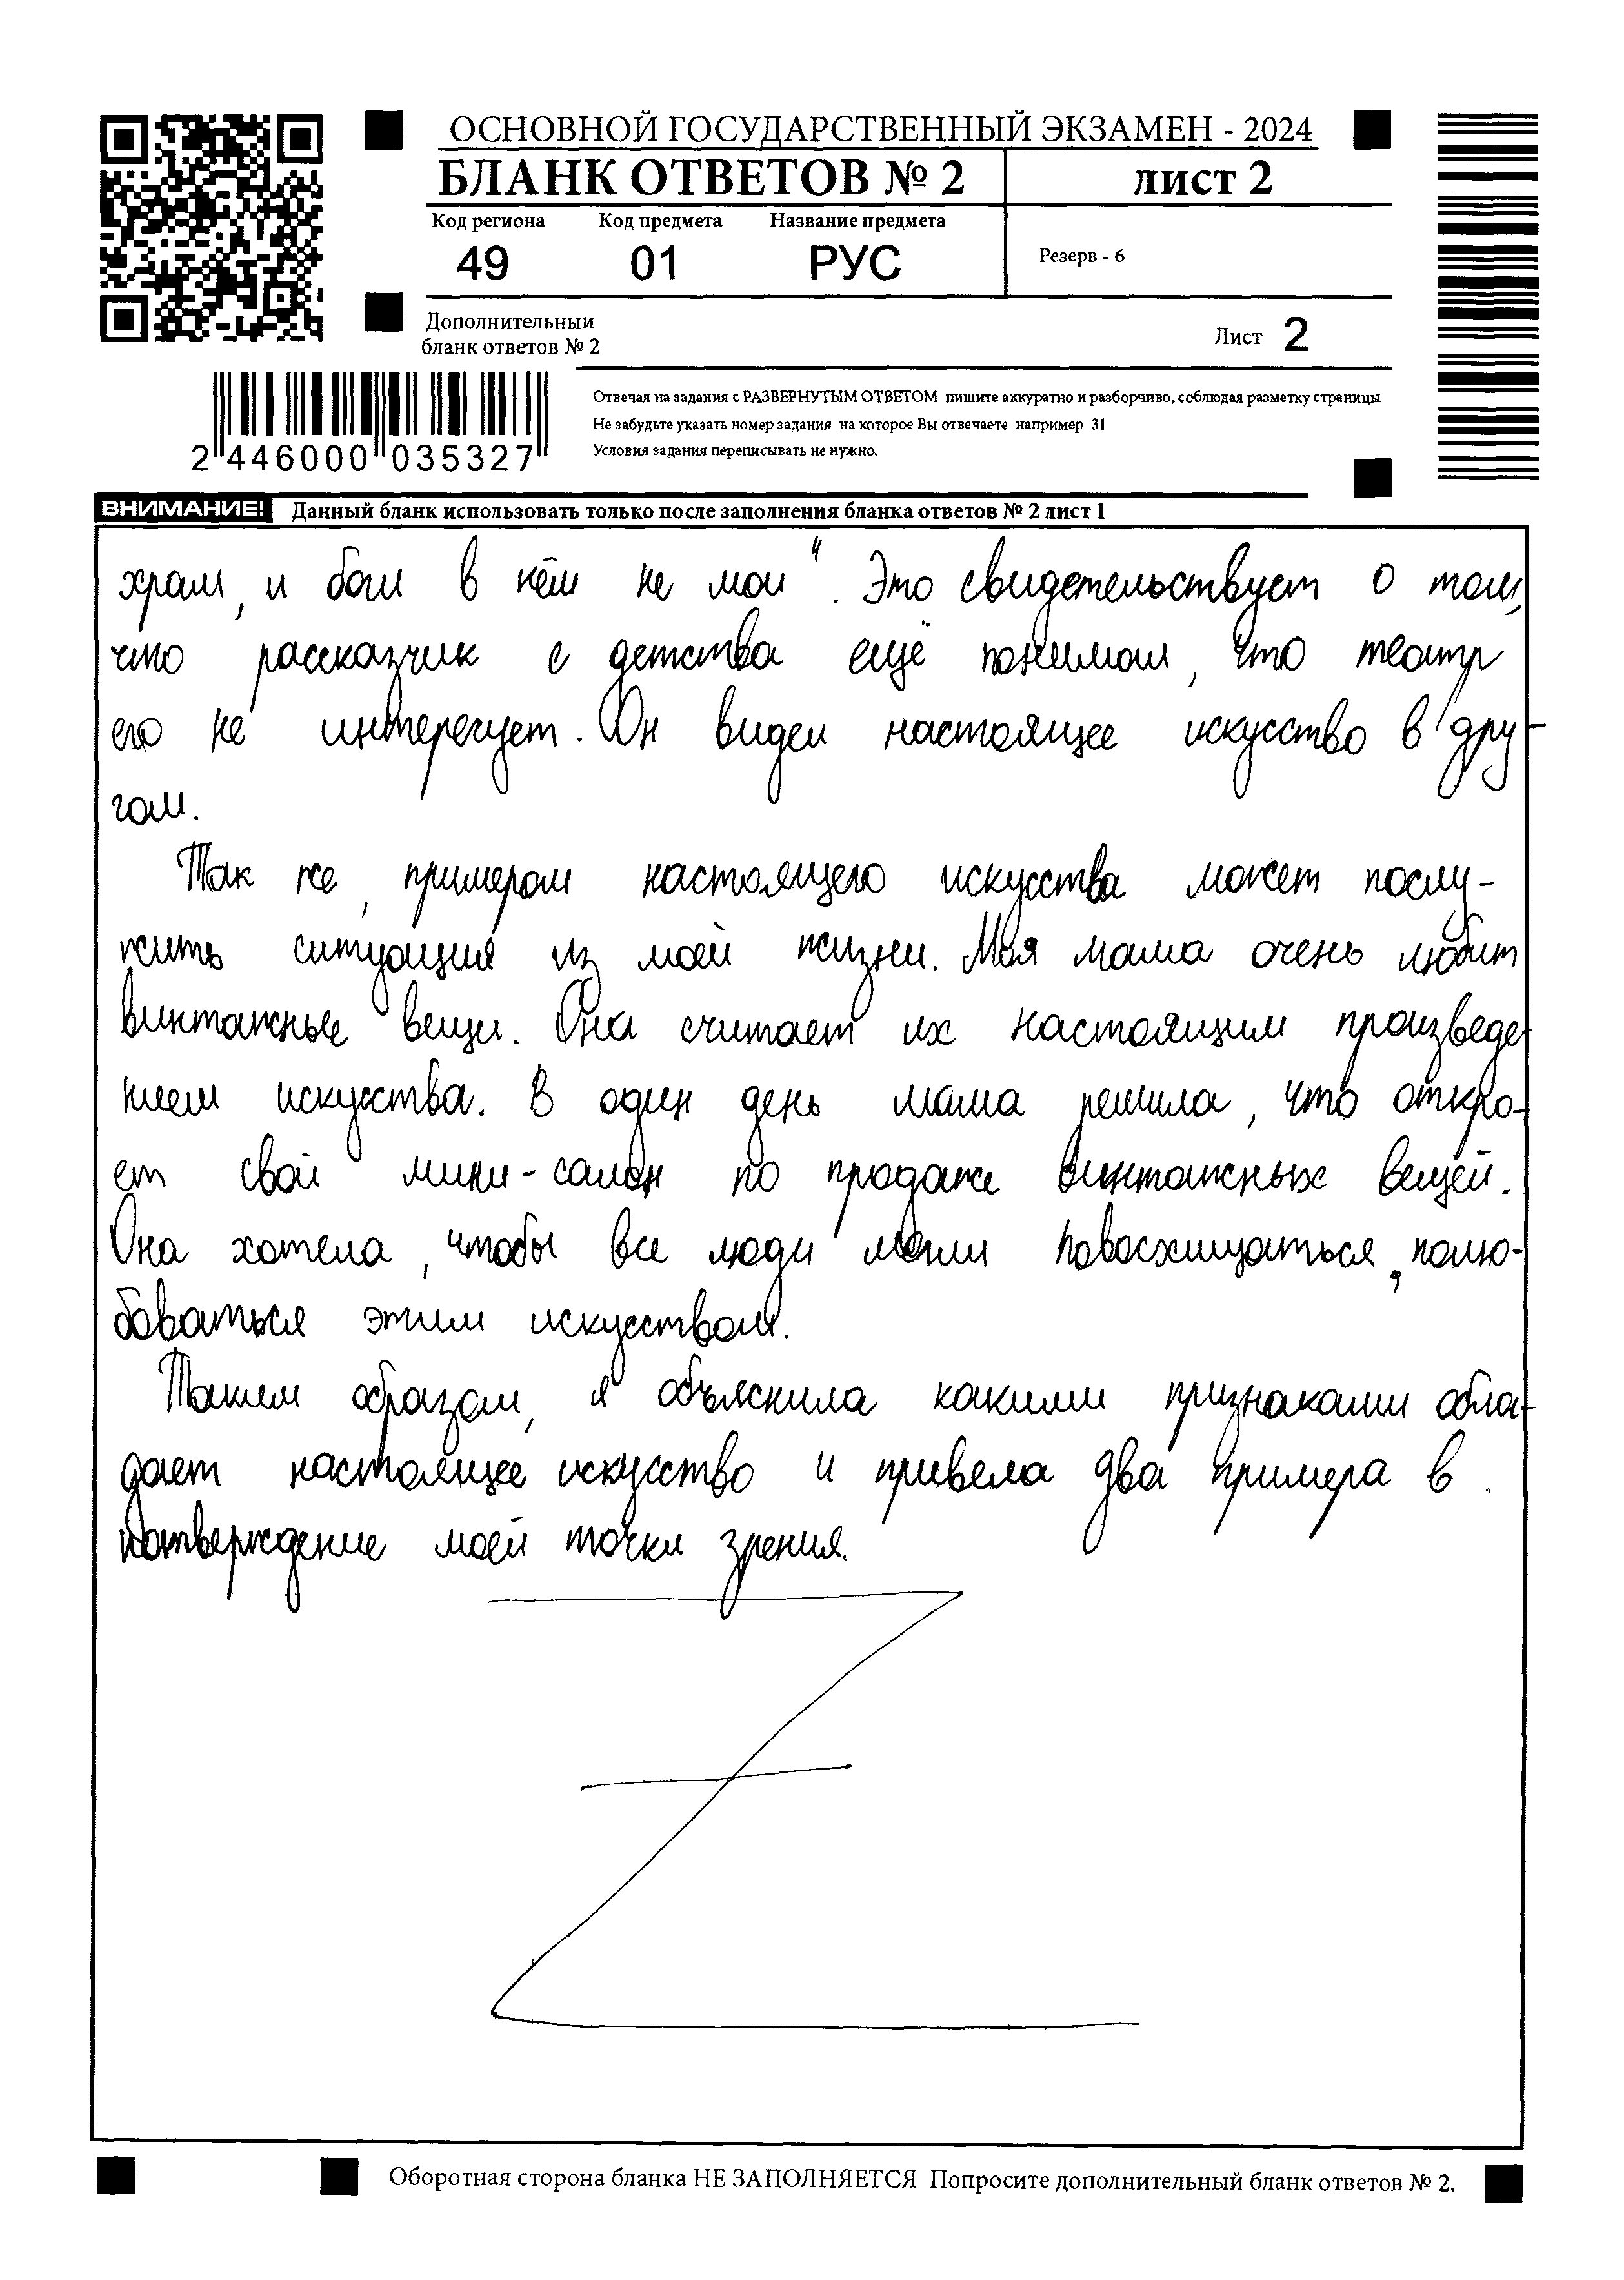 ОСНОВНОЙ ГОСУДАРСТВЕННЫЙ ЭКЗАМЕН - 2024
БЛАНК ОТВЕТОВ № 2 лист 2
Код региона Код предмета Название предмета
49 01 РУС
Резерв - 6
Дополнительныи
бланк ответов № 2
Лист 2
Отвечая на задания с РАЗВЕРНУТЫМ ОТВЕТОМ пишите аккуратно и разборчиво, соблюдая разметку страницы
Не забудьте указать номер задания на которое Вы отвечаете например 31
Условия задания переписывать не нужно.
2 446000 035327
ВНИМАНИЕ! Данный бланк использовать только после заполнения бланка ответов № 2 лист 1
храм, и бог в нём не мой". Это свидетельствует о том,
что рассказчик с детства ещё понимал, что театр
его не интересует. Он видел настоящее искусство в дру-
гом.
Так же, примером настоящего искусства может послу-
жить ситуация из моей жизни. Моя мама очень любит
винтажные вещи. Она считает их настоящим произведе-
нием искусства. В один день мама решила, что откро-
ет свой мини-салон по продаже винтажных вещей.
Она хотела, чтобы все люди могли повосхищаться, полю-
боваться этим искусством.
Таким образом, я объяснила какими признаками обла-
дает настоящее искусство и привела два примера в
потверждение моей точки зрения.
Оборотная сторона бланка НЕ ЗАПОЛНЯЕТСЯ Попросите дополнительный бланк ответов № 2.